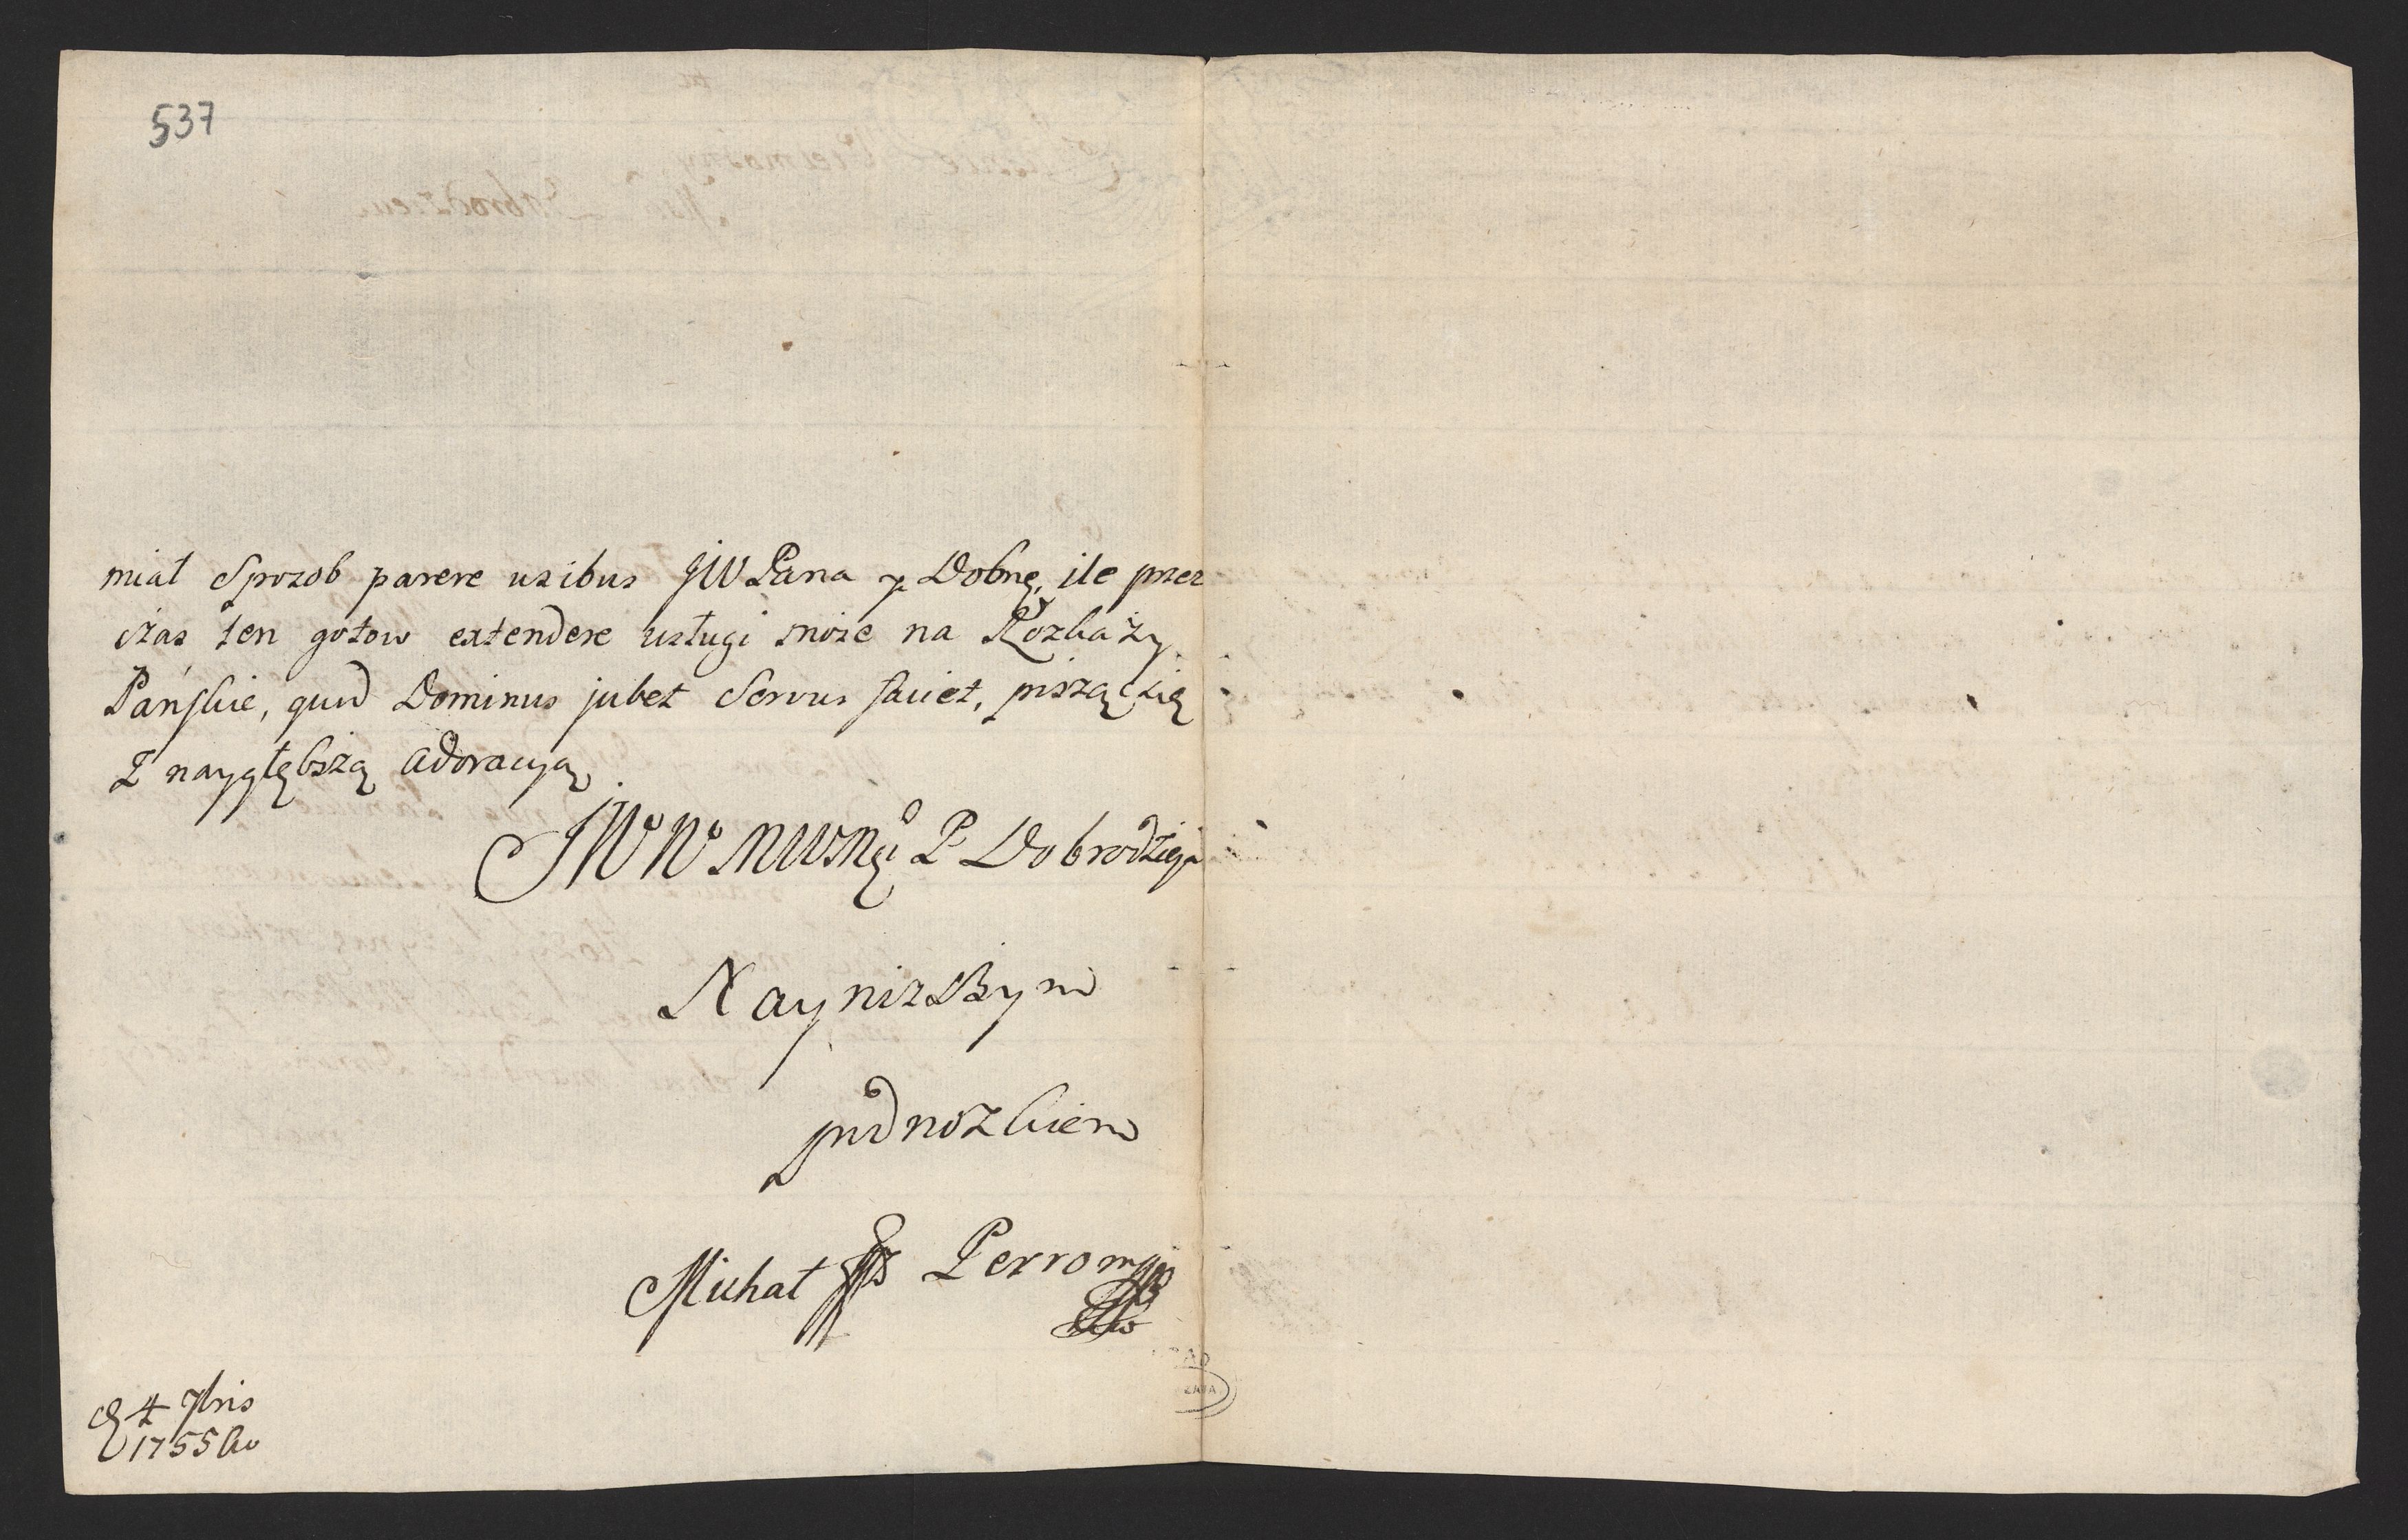 537
miał Sposob parere usibus JW Pana y Dobrę, ile przez
czas ten gotow extendere usługi może na Rozkazy
Pańskie, quod Dominus jubet Servus faciet, pisząc się
Z naygłębszą adoracyą
JWo Wo MWMgo P Dobrodzieja
Nayniższym
podnożkiem
Michał Perro
d 4 7bris
1755 Ao